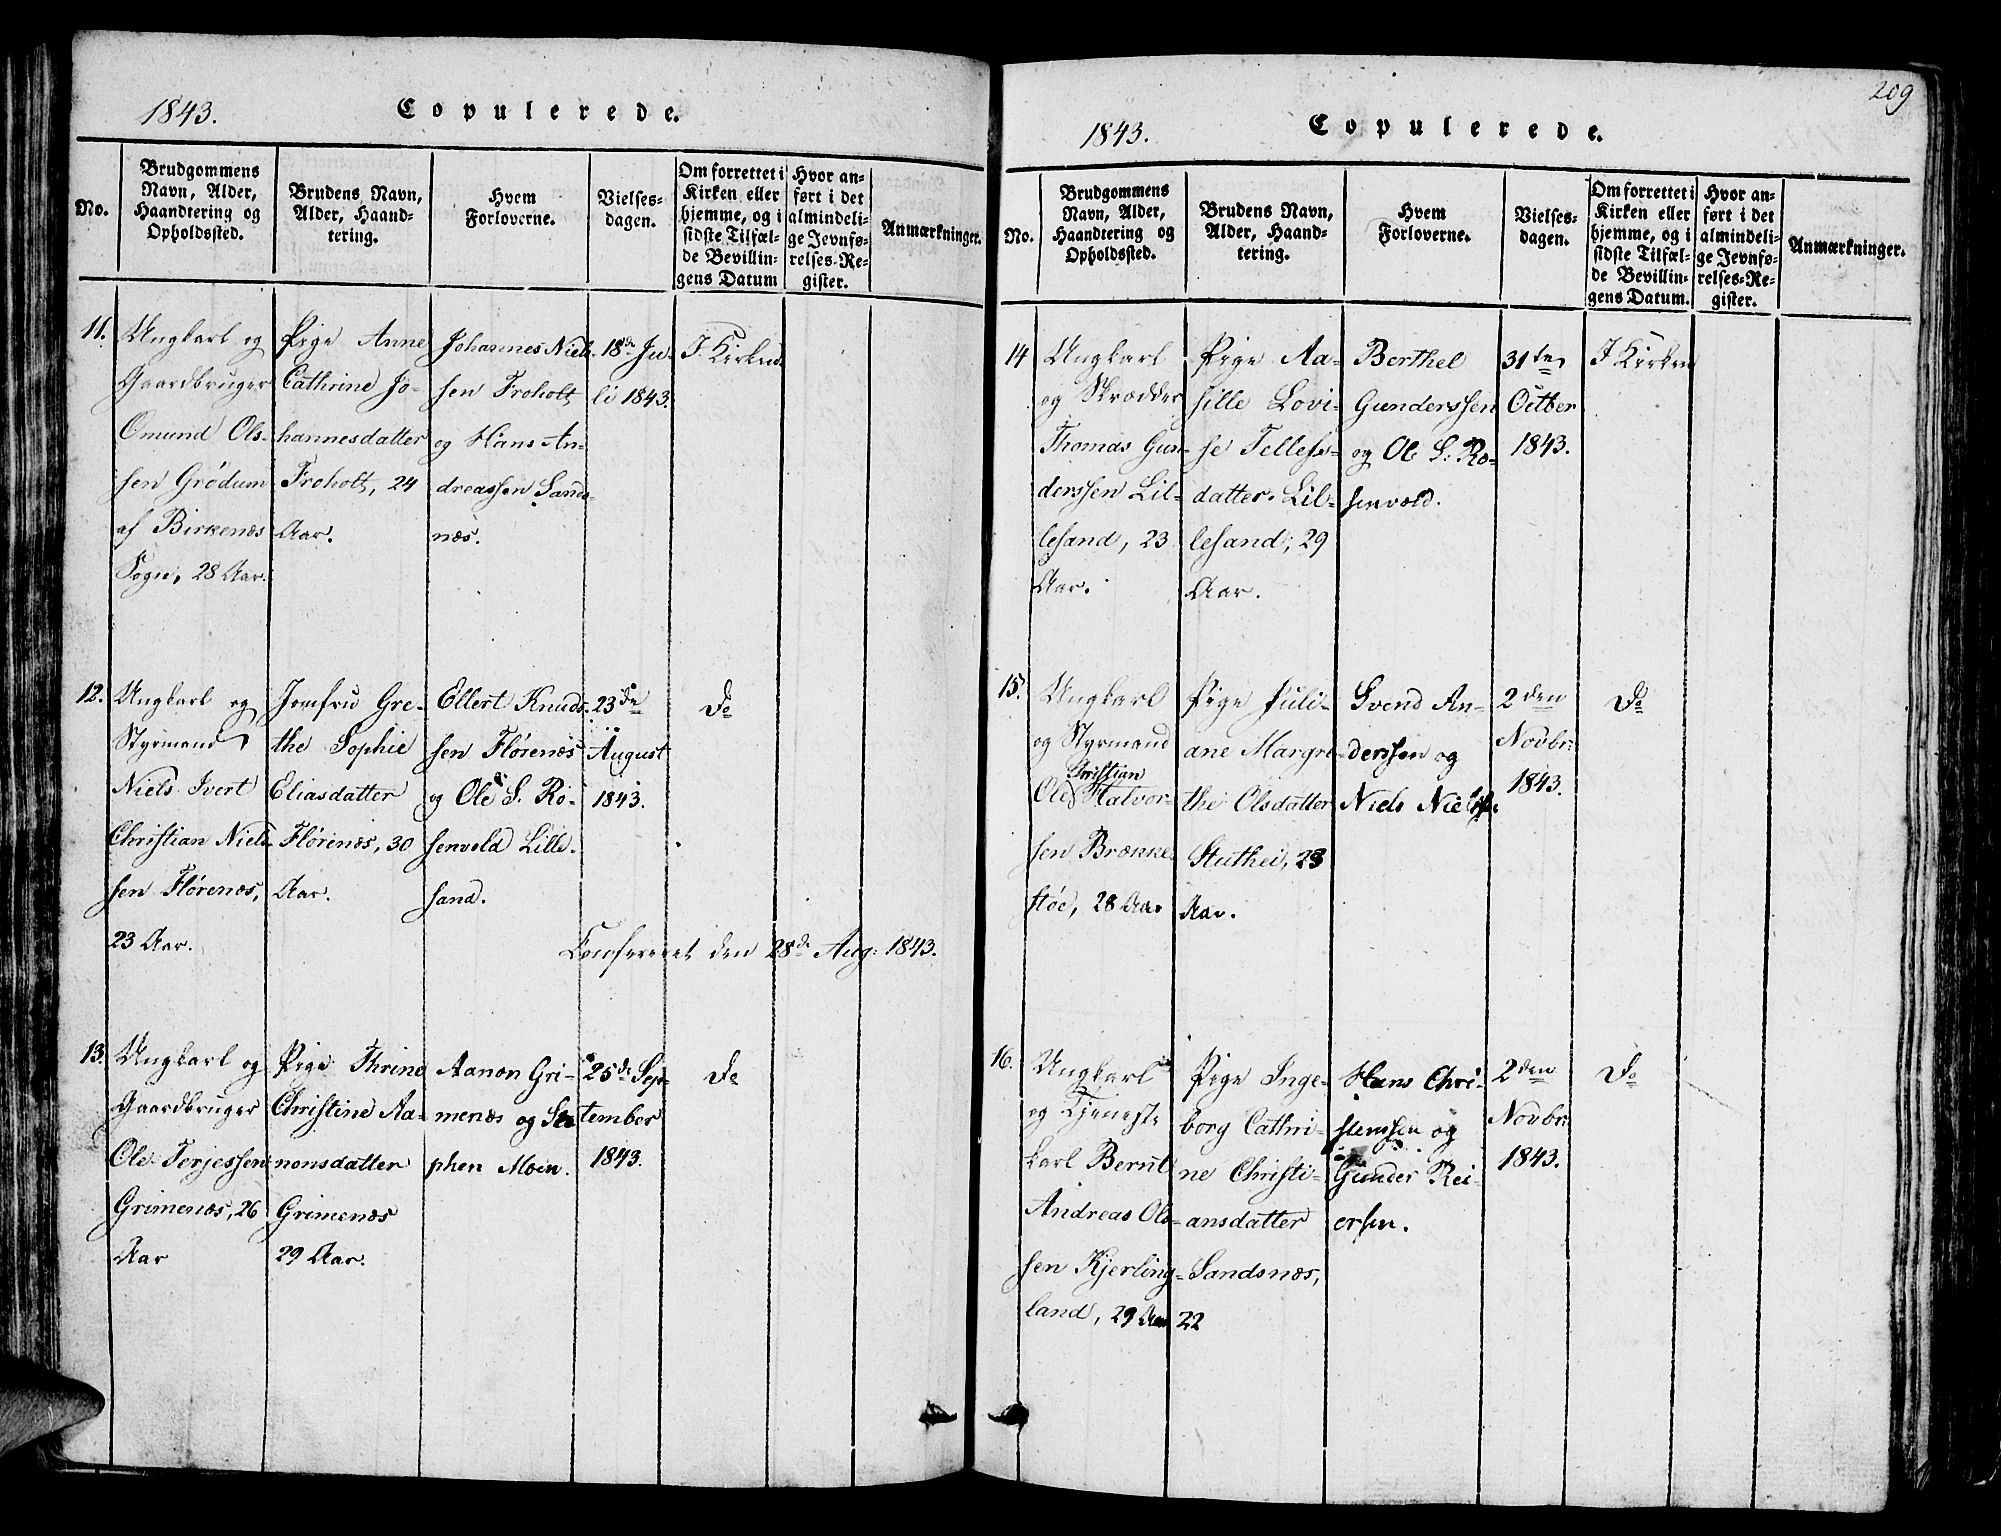 1843.
Copulerede.
No.
Brudgommens
Navn, Alder,
Haandtering og
Opholdssted.
Brudens Navn,
Alder, Haand-
tering.
Hvem
Forloverne.
Vielses-
dagen.
Om forrettet i
Kirken eller
hjemme, og i
sidste Tilfæl-
de Bevillin-
gens Datum
Hvor an-
ført i det
almindeli-
ge Jevnfø-
relses-Re-
gister.
Anmærkninger.
11.
Ungkarl og
Gaardbruger
Omund Ols-
sen Grödum
af Birkenæs
Sogn, 28 Aar.
Pige Anne
Cathrine Jo-
hannesdatter
Froholt, 24
Aar.
Johannes Niel-
sen Froholt
og Hans An-
dreassen Sands-
næs.
18de Ju-
li 1843.
I Kirken
12.
Ungkarl og
Styrmand
Niels Ivert
Christian Niel-
sen Flörenæs,
23 Aar.
Jomfru Gre-
the Sophie
Eliasdatter
Flörenæs, 30
Aar.
Ellert Knud-
sen Flörenæs
og Ole S. Ro-
senvold Lille-
sand.
23de
August
1843.
Do
Confereret den 28de Aug: 1843.
13.
Ungkarl og
Gaardbruger
Ole Terjessen
Grimenæs, 26
Aar
Pige Thrine
Christine Aa-
nonsdatter
Grimenæs
29 Aar.
Aanon Gri-
menæs og Ste-
phen Moen.
25de Sep-
tember
1843.
Do
209
1843.
Copulerede.
No.
Brudgommens
Navn, Alder,
Haandtering og
Opholdssted.
Brudens Navn,
Alder, Haand-
tering.
Hvem
Forloverne.
Vielses-
dagen.
Om forrettet i
Kirken eller
hjemme, og i
sidste Tilfæl-
de Bevillin-
gens Datum.
Hvor an-
ført i det
almindeli-
ge Jevnfø-
relses-Re-
gister.
Anmærkninger.
14
Ungkarl
og Skrædder
Thomas Gun-
derssen Lil-
lesand, 23
Aar.
Pige Aa-
sille Lovi-
se Tellefs-
datter Lil-
lesand, 29
Aar.
Berthel
Gunderssen
og Ole S. Ro-
senvold.
31te
Octber
1843.
I Kirken
15.
Ungkarl
og Styrmand
Christian
Ole Halvor-
sen Brække-
stöe, 28 Aar
Pige Juli-
ane Margre-
the Olsdatter
Stuthei, 23
Aar.
Svend An-
derssen og
Niels Nielsen
2den
Novbr:
1843.
Do
16.
Ungkarl
og Tjeneste-
karl Bernt
Andreas Ols-
sen Kjerling-
land, 29 Aar
Pige Inge-
borg Cathri-
ne Christi-
ansdatter
Sandsnæs,
22
Hans Chri-
stenssen og
Gunder Rei-
ersen.
2den
Novbr:
1843.
Do